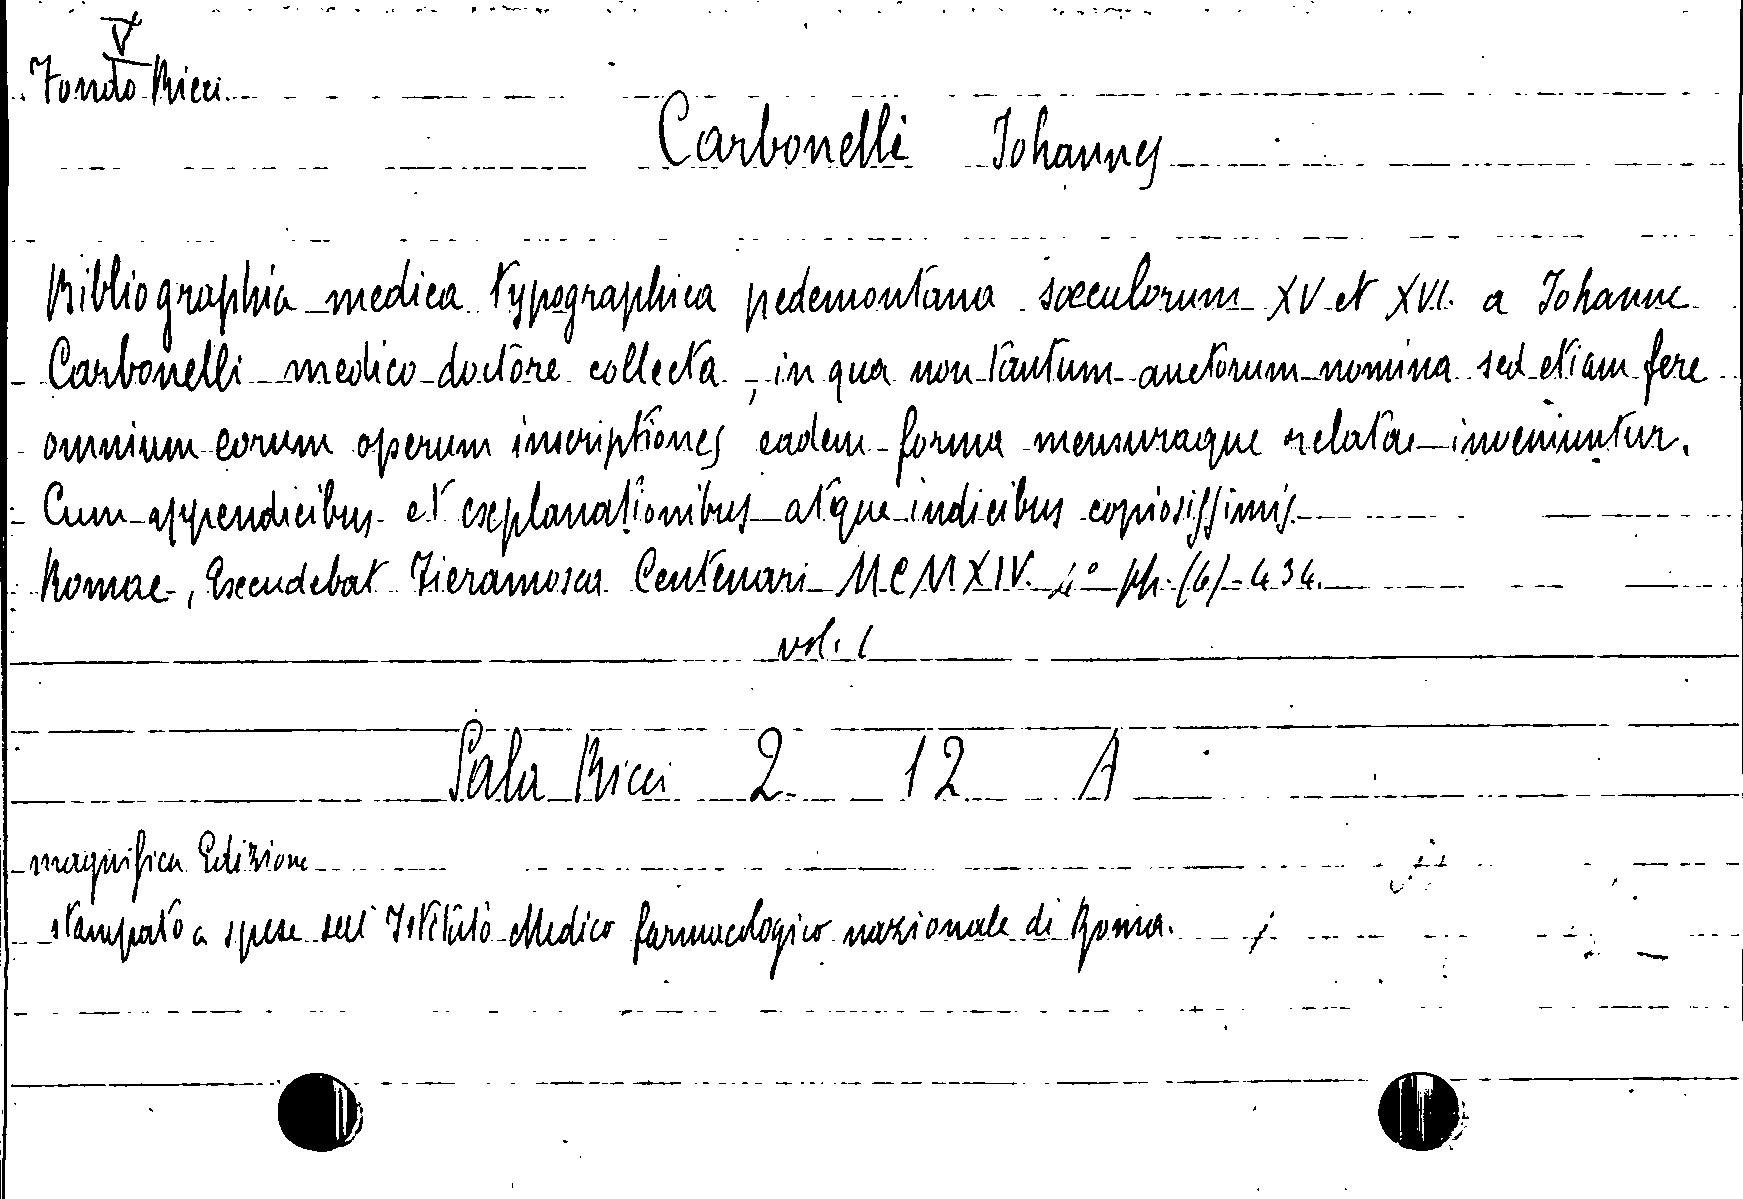 V
Fondo Ricci
Carbonelli Johannes
Bibliographia medica typographica pedemontana sæculorum XV et XVI. a Johanne
Carbonelli medico doctore collecta, in qua non tantum auctorum nomina sed etiam fere
omnium eorum operum inscriptiones eadem forma mensuraque relatae inveniuntur.
Cum appendicibus et explanationibus atque indicibus copiosissimis.
Romae, Excudebat Fieramosca Centenari MCMXIV. 4° pp. (6)-434.
vol. 1
Sala Ricci 2 12 A
magnifica Edizione
stampato a spese dell'Istituto Medico farmacologico nazionale di Roma.